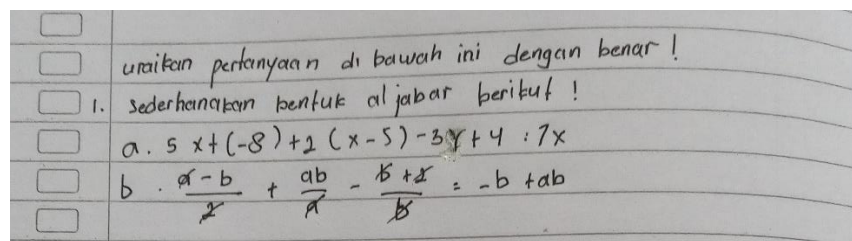 uraikan pertanyaan di bawah ini dengan benar !
1. Sederhanakan bentuk aljabar berikut !
a. 5x+(-8)+2(x-5)-3y+4 : 7x
b. a-b/2 + ab/a - b+2/b = -b +ab